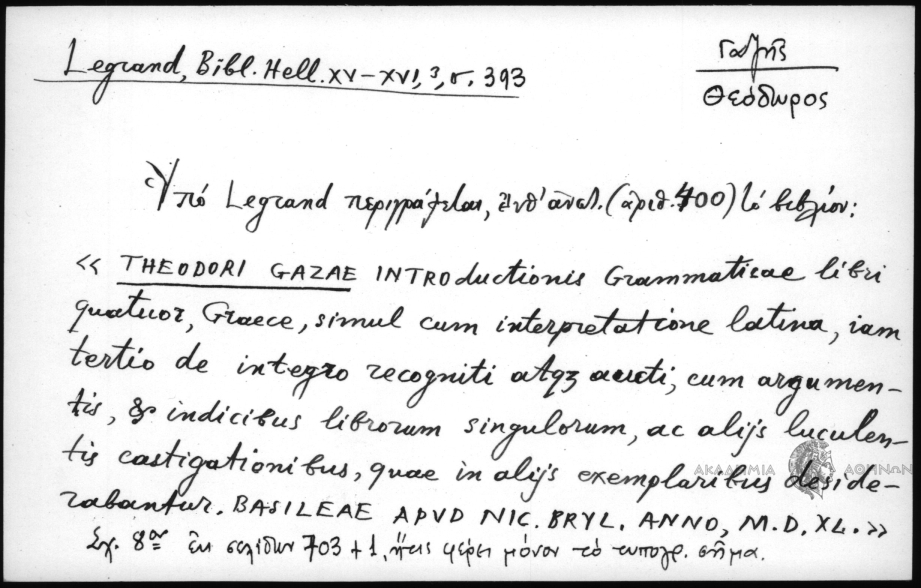 Legrand, Bibl. Hell. XV–XVI, 3, σ. 393
Γαζῆς
Θεόδωρος
Ὑπό Legrand περιγράφεται, ἐνθ' ἀνωτ. (ἀριθ. 400) τό βιβλίον:
« THEODORI GAZAE INTROductionis Grammaticae libri
quatuor, Graece, simul cum interpretatione latina, iam
tertio de integro recogniti atqз aucti, cum argumen-
tis, & indicibus librorum singulorum, ac alijs luculen-
tis castigationibus, quae in alijs exemplaribus deside-
rabantur. BASILEAE APVD NIC. BRYL. ANNO, M.D.XL. »
Σχ. 8ον ἐκ σελίδων 703 + 1, ἥτις φέρει μόνον τό τυπογρ. σῆμα.
ΑΚΑΔΗΜΙΑ ΑΘΗΝΩΝ